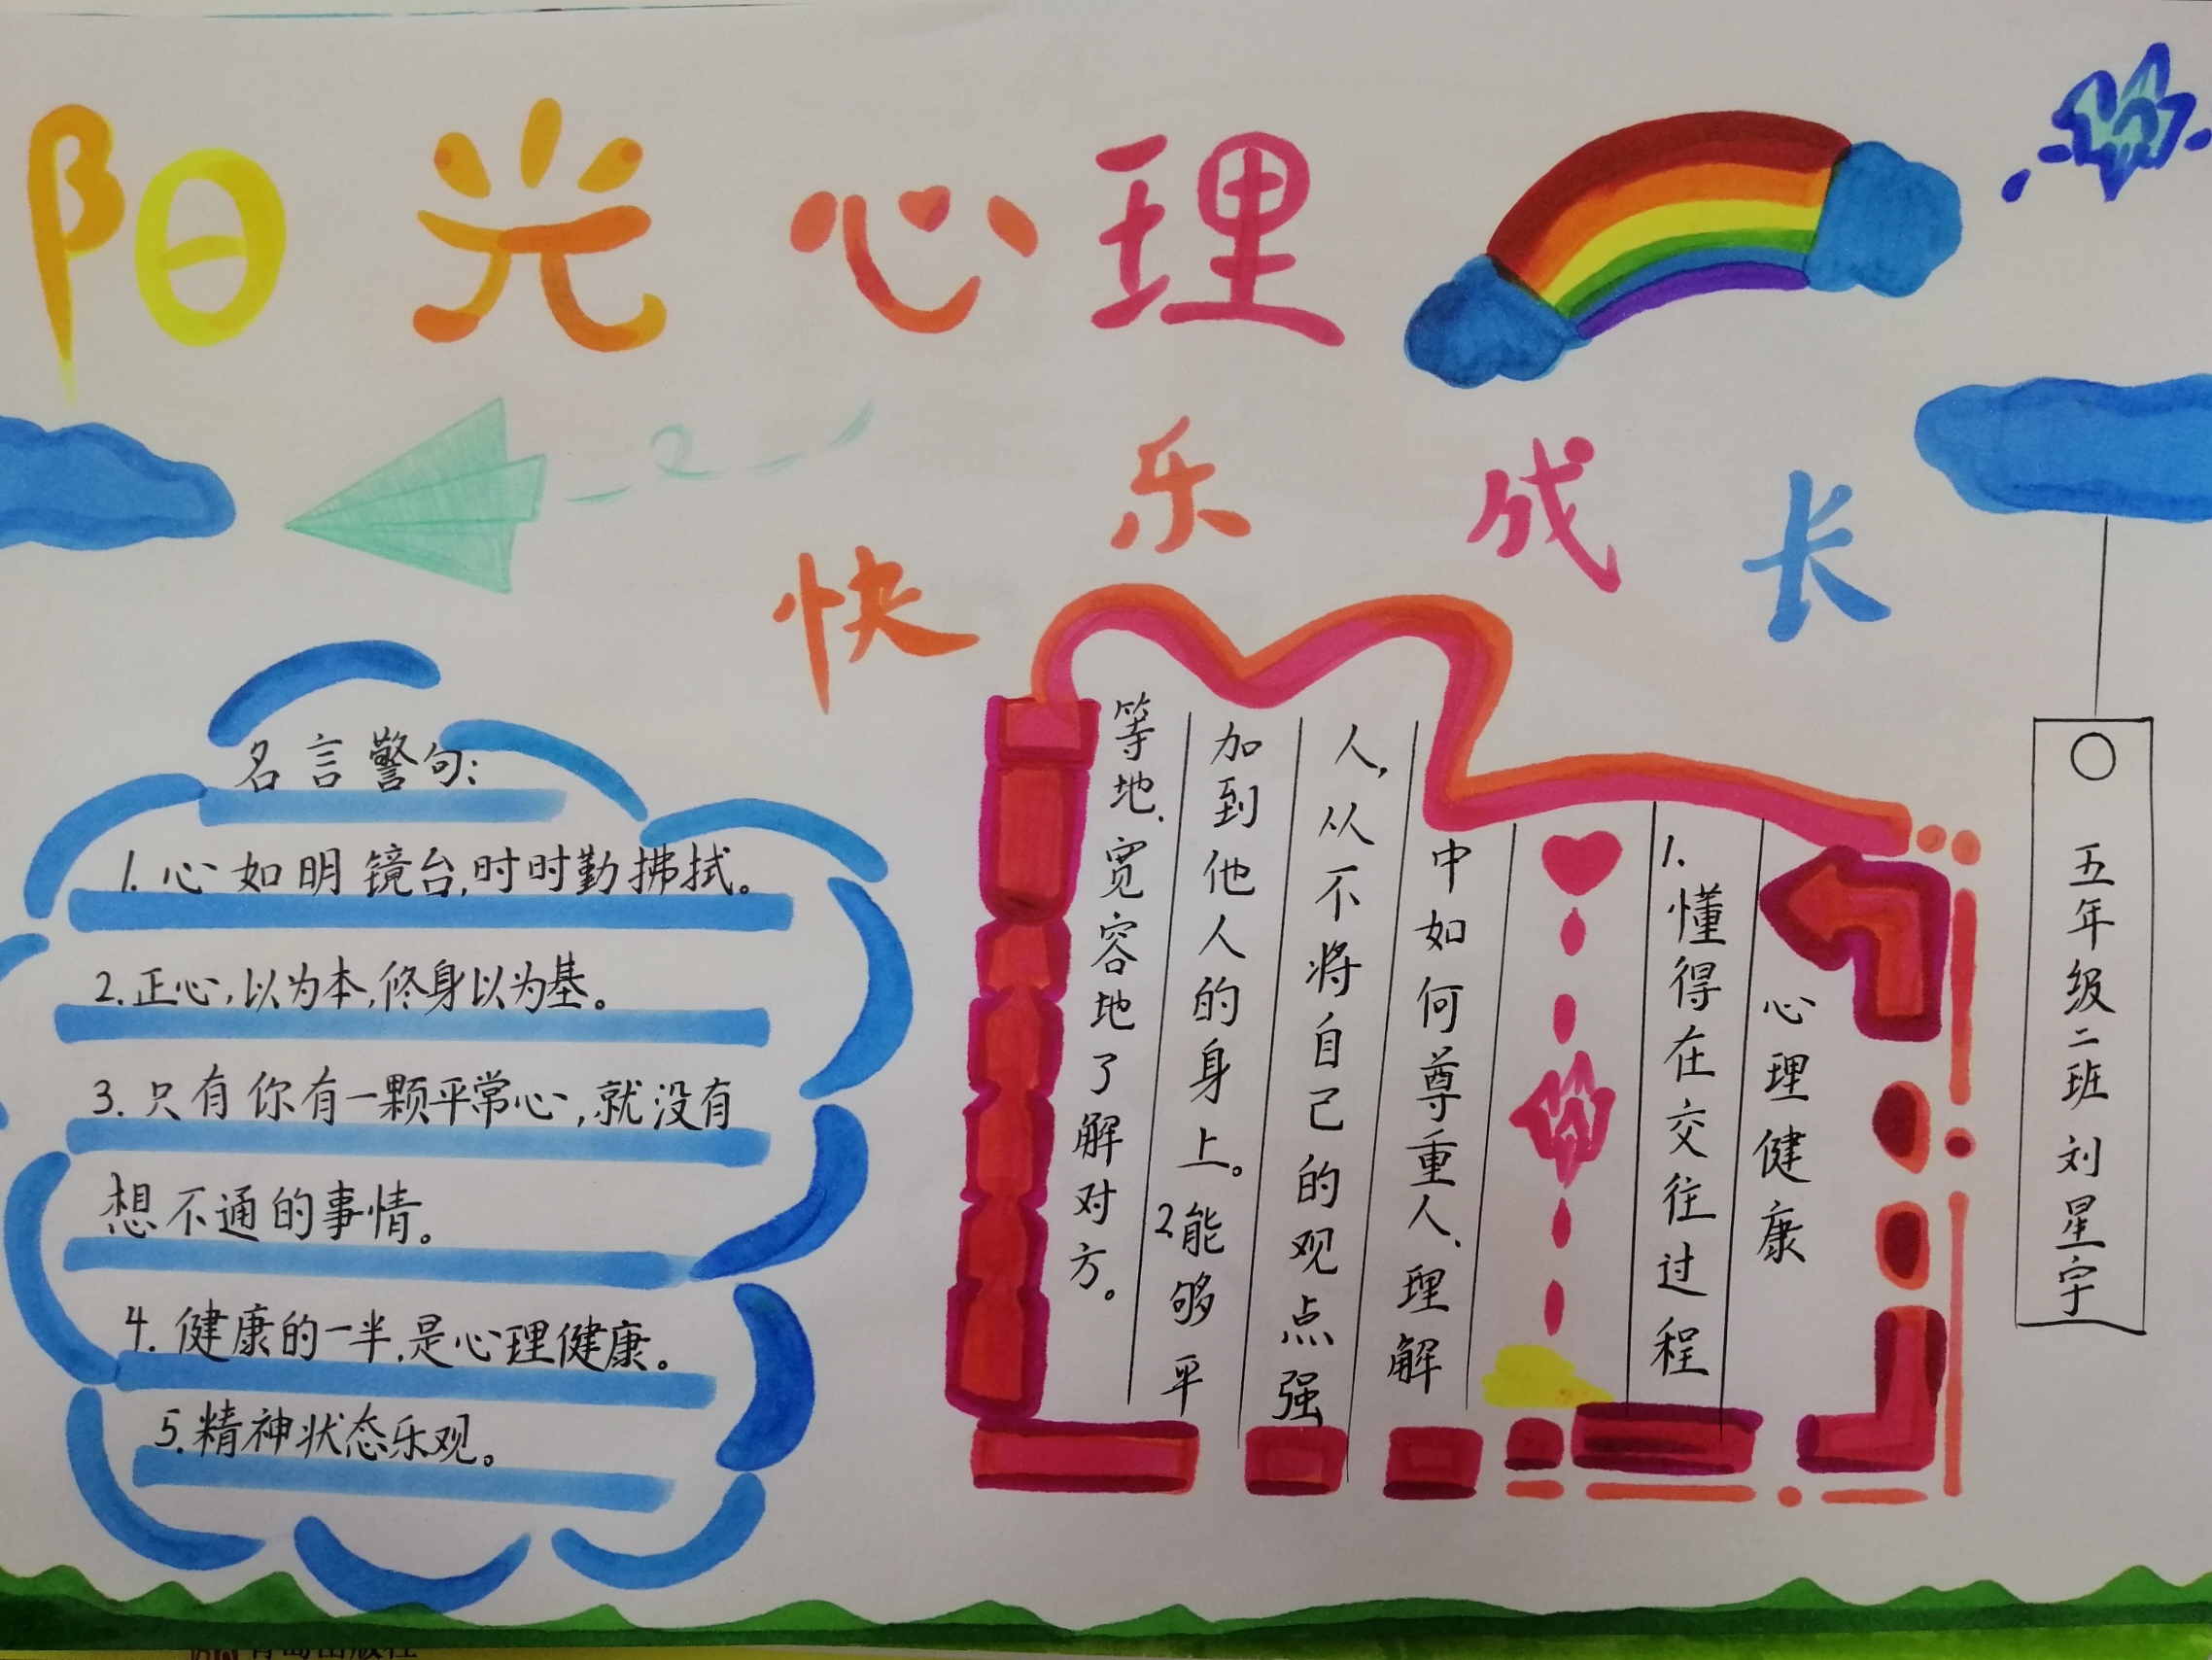 阳光心理
快乐成长
名言警句:
1. 心如明镜台,时时勤拂拭。
2. 正心,以为本,修身以为基。
3. 只有你有一颗平常心,就没有
想不通的事情。
4. 健康的一半,是心理健康。
5. 精神状态乐观。
心理健康
1. 懂得在交往过程
中如何尊重人、理解
人,从不将自己的观点强
加到他人的身上。2能够平
等地、宽容地了解对方。
五年级二班 刘星宇
青岛出版社